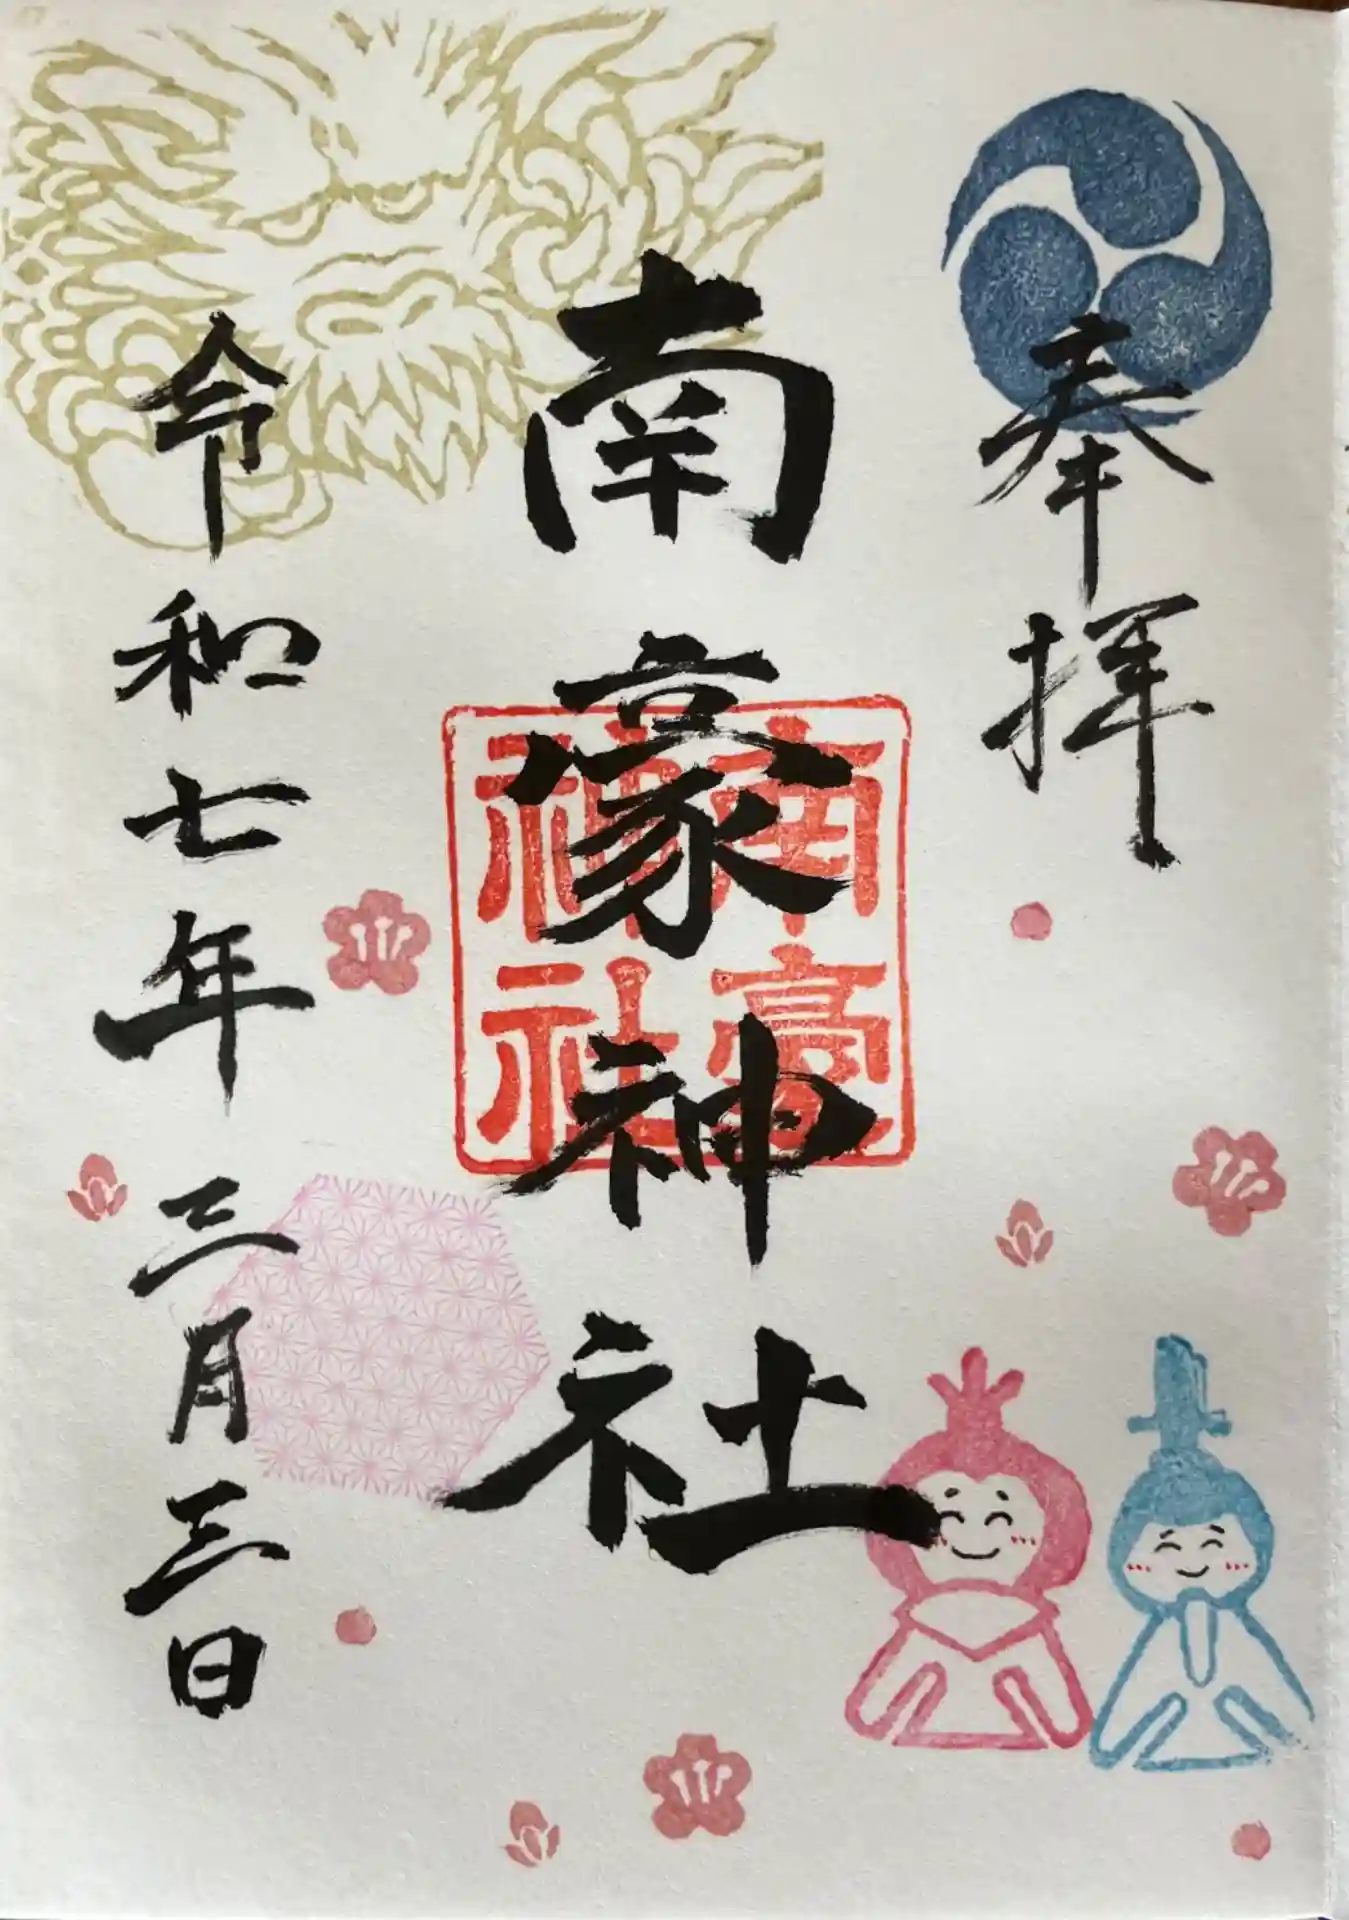 奉拝
南豪神社
令和七年三月三日
南豪
神社